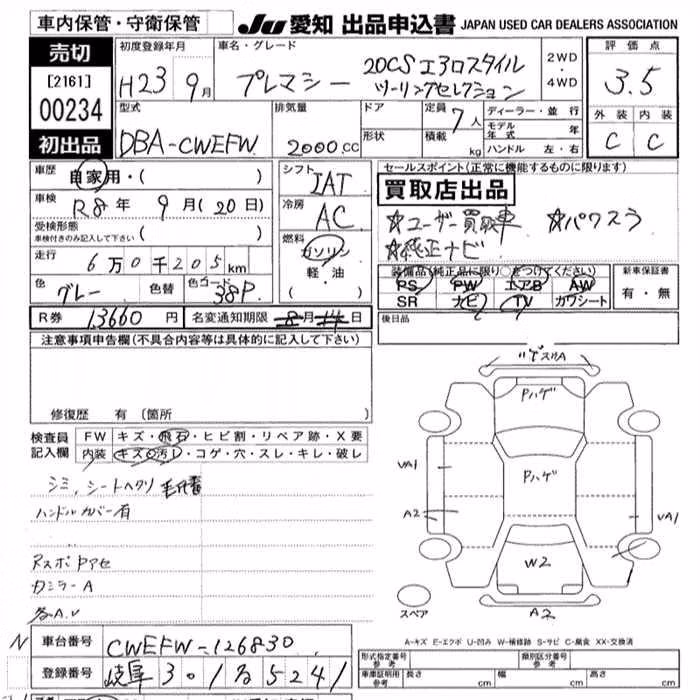 車内保管・守衛保管
JU 愛知 出品申込書 JAPAN USED CAR DEALERS ASSOCIATION
売切
[2161]
00234
初出品
初度登録年月 車名・グレード
H23 9月 プレマシー 20CS エアロスタイル ツーリングセレクション
2WD・4WD
評価点
3.5
外装 内装
C C
型式 排気量 ドア 形状 定員 7人 積載 kg
DBA-CWEFW 2000cc
ディーラー・並行
モデル年式 年
ハンドル 左・右
車歴 自家用・( )
車検 R8年 9月(20日)
受検形態 車検付きのみ記入して下さい ( )
走行 6万0千205km
色 グレー 色替 色コード 38P
シフト IAT
冷房 AC
燃料 ガソリン・軽油 ( )
セールスポイント(正常に機能するものに限ります)
買取店出品
☆ユーザー買取車 ☆パワスラ
☆純正ナビ
装備品(純正品に限り○をつけてください)
PS PW エアB AW
SR ナビ TV カワシート
新車保証書
有・無
後日品
R券 13660円 名変通知期限 8月14日
注意事項申告欄(不具合内容等は具体的に記入して下さい)
修復歴 有 〔箇所 〕
検査員記入欄
FW キズ・飛石・ヒビ割・リペア跡・X要
内装 キズ・汚レ・コゲ・穴・スレ・キレ・破レ
シミ、シートヘタリ
ハンドルカバー有
Rスポ トアセ
ドミラーA
各A.U
リップスリA
Pハゲ
Pハゲ
VA1
A2
VA1
W2
A2
スペア
A-キズ E-エクボ U-凹み W-補修跡 S-サビ C-腐食 XX-交換済
N 車台番号 CWEFW-126830
登録番号 岐阜 301 る 5241
形式指定番号 参考 類別区分番号 参考
車庫証明用 参考 長さ cm 幅 cm 高さ cm